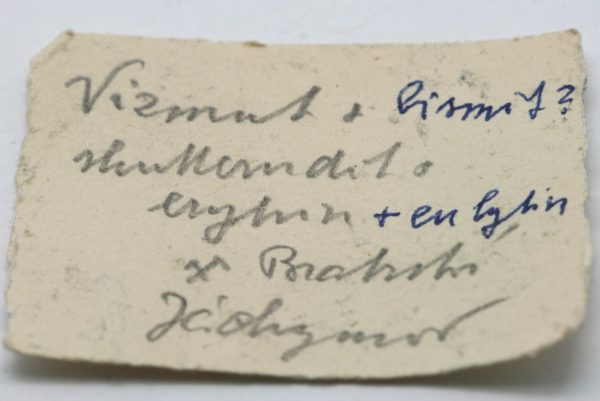 Vizmut + bismit?
skutterudit +
erythrin + eulytin
Jáchymov